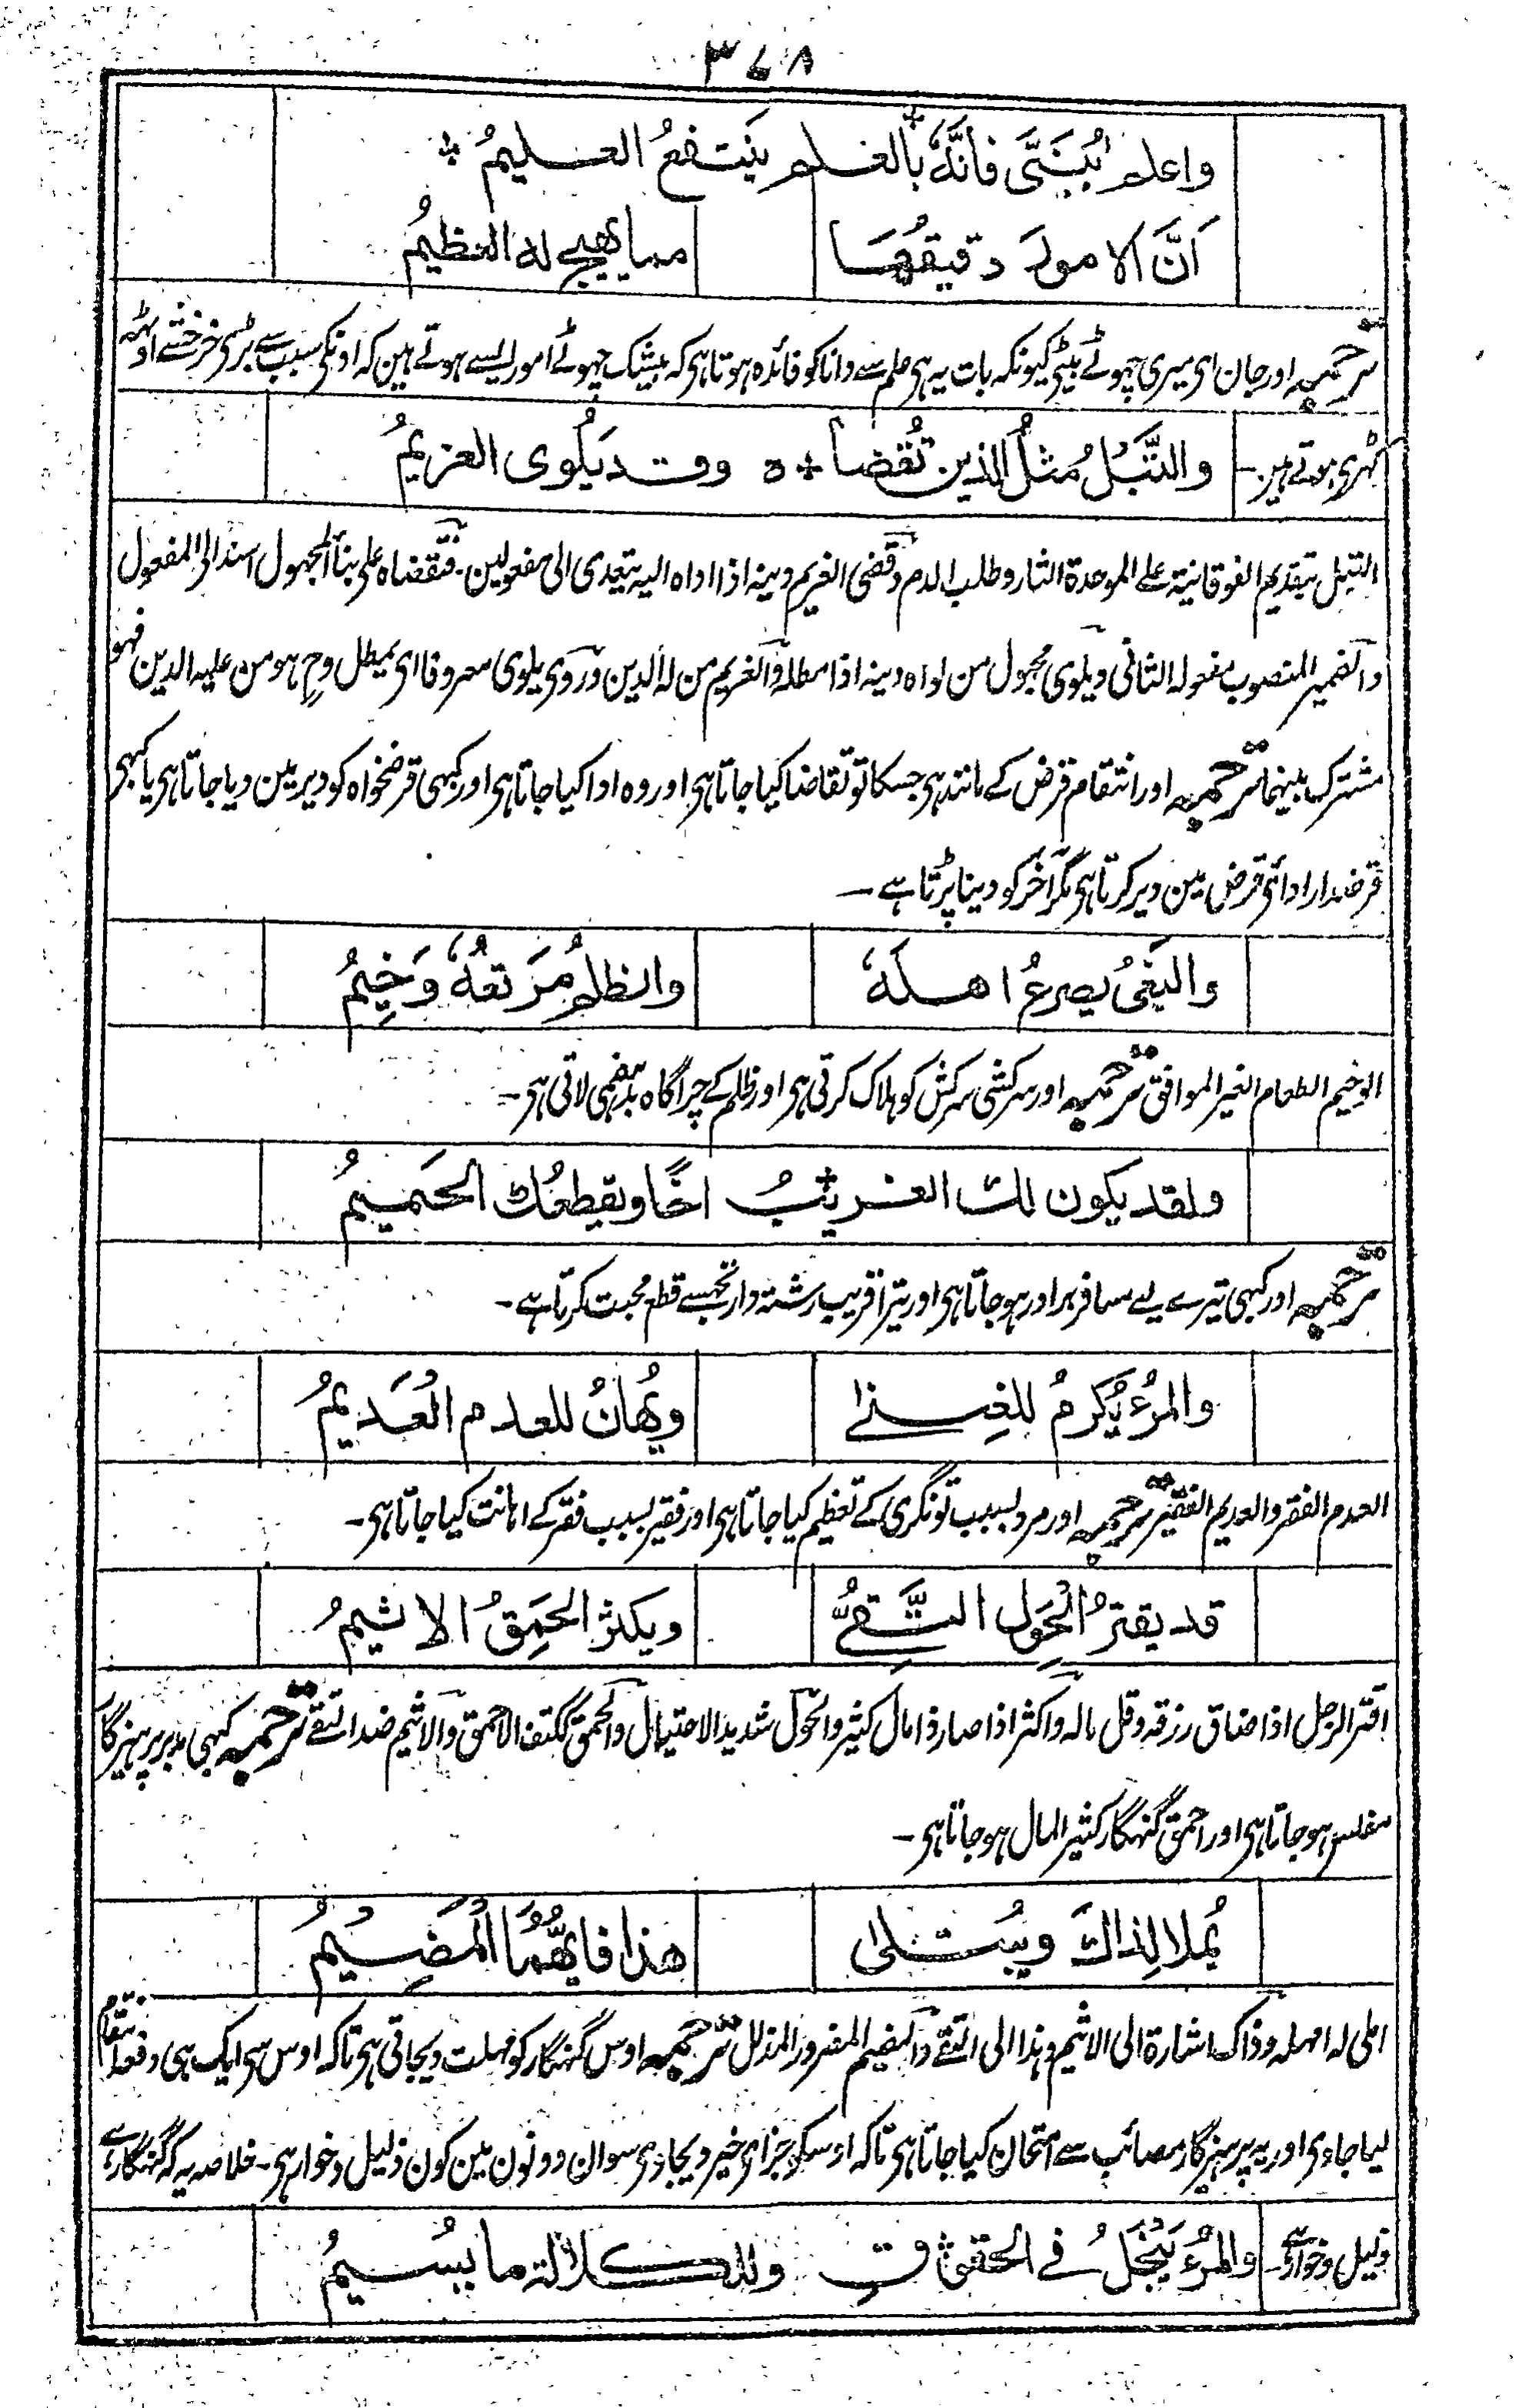 ٣٧٨
واعلم بُنَيَّ فانَّهٗ بالعلم يَنتفعُ العليمُ
اَنَّ الامورَ دقيقُهَا مما يهيج له العظيمُ
ترجمہ اور جان ای میری چہوٹے بیٹی کیونکہ بات یہ ہی علم سے دانا کو فائدہ ہوتا ہی کہ بیشک چہوٹے امور ایسے ہوتے ہین کہ اونکی سبب سے بڑی خرخشے اوٹہہ
کہڑی ہوتے ہین – والتَّبلُ مثلُ الدين تُقضاہ وقد يَلْوى الغريمُ
التبل بتقديم الفوقانية على الموحدة الثار وطلب الدم وقضى الغريم دينه اذا اداه اليه يتعدى الى مفعولين فتقضاه على بناء المجهول اسند الى المفعول
والضمير المنصوب مفعوله الثانى ويلوى مجهول من لواه دينه اذا مطله والغريم من له الدين وروى يلوى معروفا اى يمطل وح هو من عليه الدين فهو
مشترک بينهما ترجمہ اور انتقام قرض کے مانند ہی جسکا تو تقاضا کیا جاتا ہی اور وہ ادا کیا جاتا ہی اور کبہی قرضخواہ کو دیر مین دیا جاتا ہی یا کبہی
قرضدار ادائی قرض مین دیر کرتا ہی مگر آخر کو دینا پڑتا ہے –
والبَغىُ يصرعُ اهلَهٗ والظلمُ مَرتعُهٗ وَخِيمُ
الوخيم الطعام الغير الموافق ترجمہ اور سرکشی سرکش کو ہلاک کرتی ہی اور ظلم کے چراگاہ بدہضمی لاتی ہی –
ولقد يكون لك الغريبُ اخًا ويقطعُك الحَميمُ
ترجمہ اور کبہی تیرے لیے مسافر برادر ہو جاتا ہی اور تیرا قریب رشتہ دار تجہسے قطع محبت کرتا ہے –
والمرءُ يُكرمُ للغِنىٰ ويُهانُ للعدم العَديمُ
العدم الفقر والعديم الفقير ترجمہ اور مرد بسبب تونگری کے تعظیم کیا جاتا ہی اور فقیر بسبب فقر کے اہانت کیا جاتا ہی –
قد يقترُ الحَوِلُ التَّقىُّ ويكثر الحَمِقُ الاثيمُ
اقتر الرجل اذا ضاق رزقه وقل ماله واكثر اذا صار ذا مال كثير والحول شديد الاحتيال والحمق ككتف الاحمق والاثيم ضد التقے ترجمہ کبہی مدبر پرہیزگار
مفلس ہو جاتا ہی اور احمق گنہگار کثیر المال ہو جاتا ہی –
يُملا لِذاكَ ويُبتلىٰ هذا فايُّهُمَا المَضيمُ
املى له امهله وذاك اشارة الى الاثيم وهذا الى التقے والمضيم المذلل ترجمہ اوس گنہگار کو مہلت دیجاتی ہی تاکہ اوس سی ایک ہی دفعہ انتقام
لیا جاوی اور یہ پرہیزگار مصائب سے امتحان کیا جاتا ہی تاکہ اوسکو جزای خیر دیجاوی سو ان دونون مین کون ذلیل و خوار ہی – خلاصہ یہ کہ گنہگار ہے
ذلیل و خوار ہے – والمرءُ يَبْخَلُ فى الحقوقِ وللكلالة ما يُسيمُ